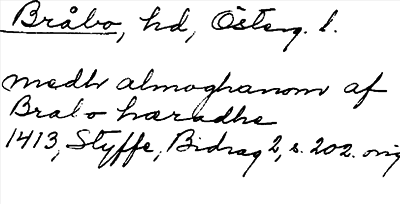 Bråbo, hd, Österg. l.
medh almoghanom af
Bralo hæradhe
1413, Styffe, Bidrag 2, s. 202. orig